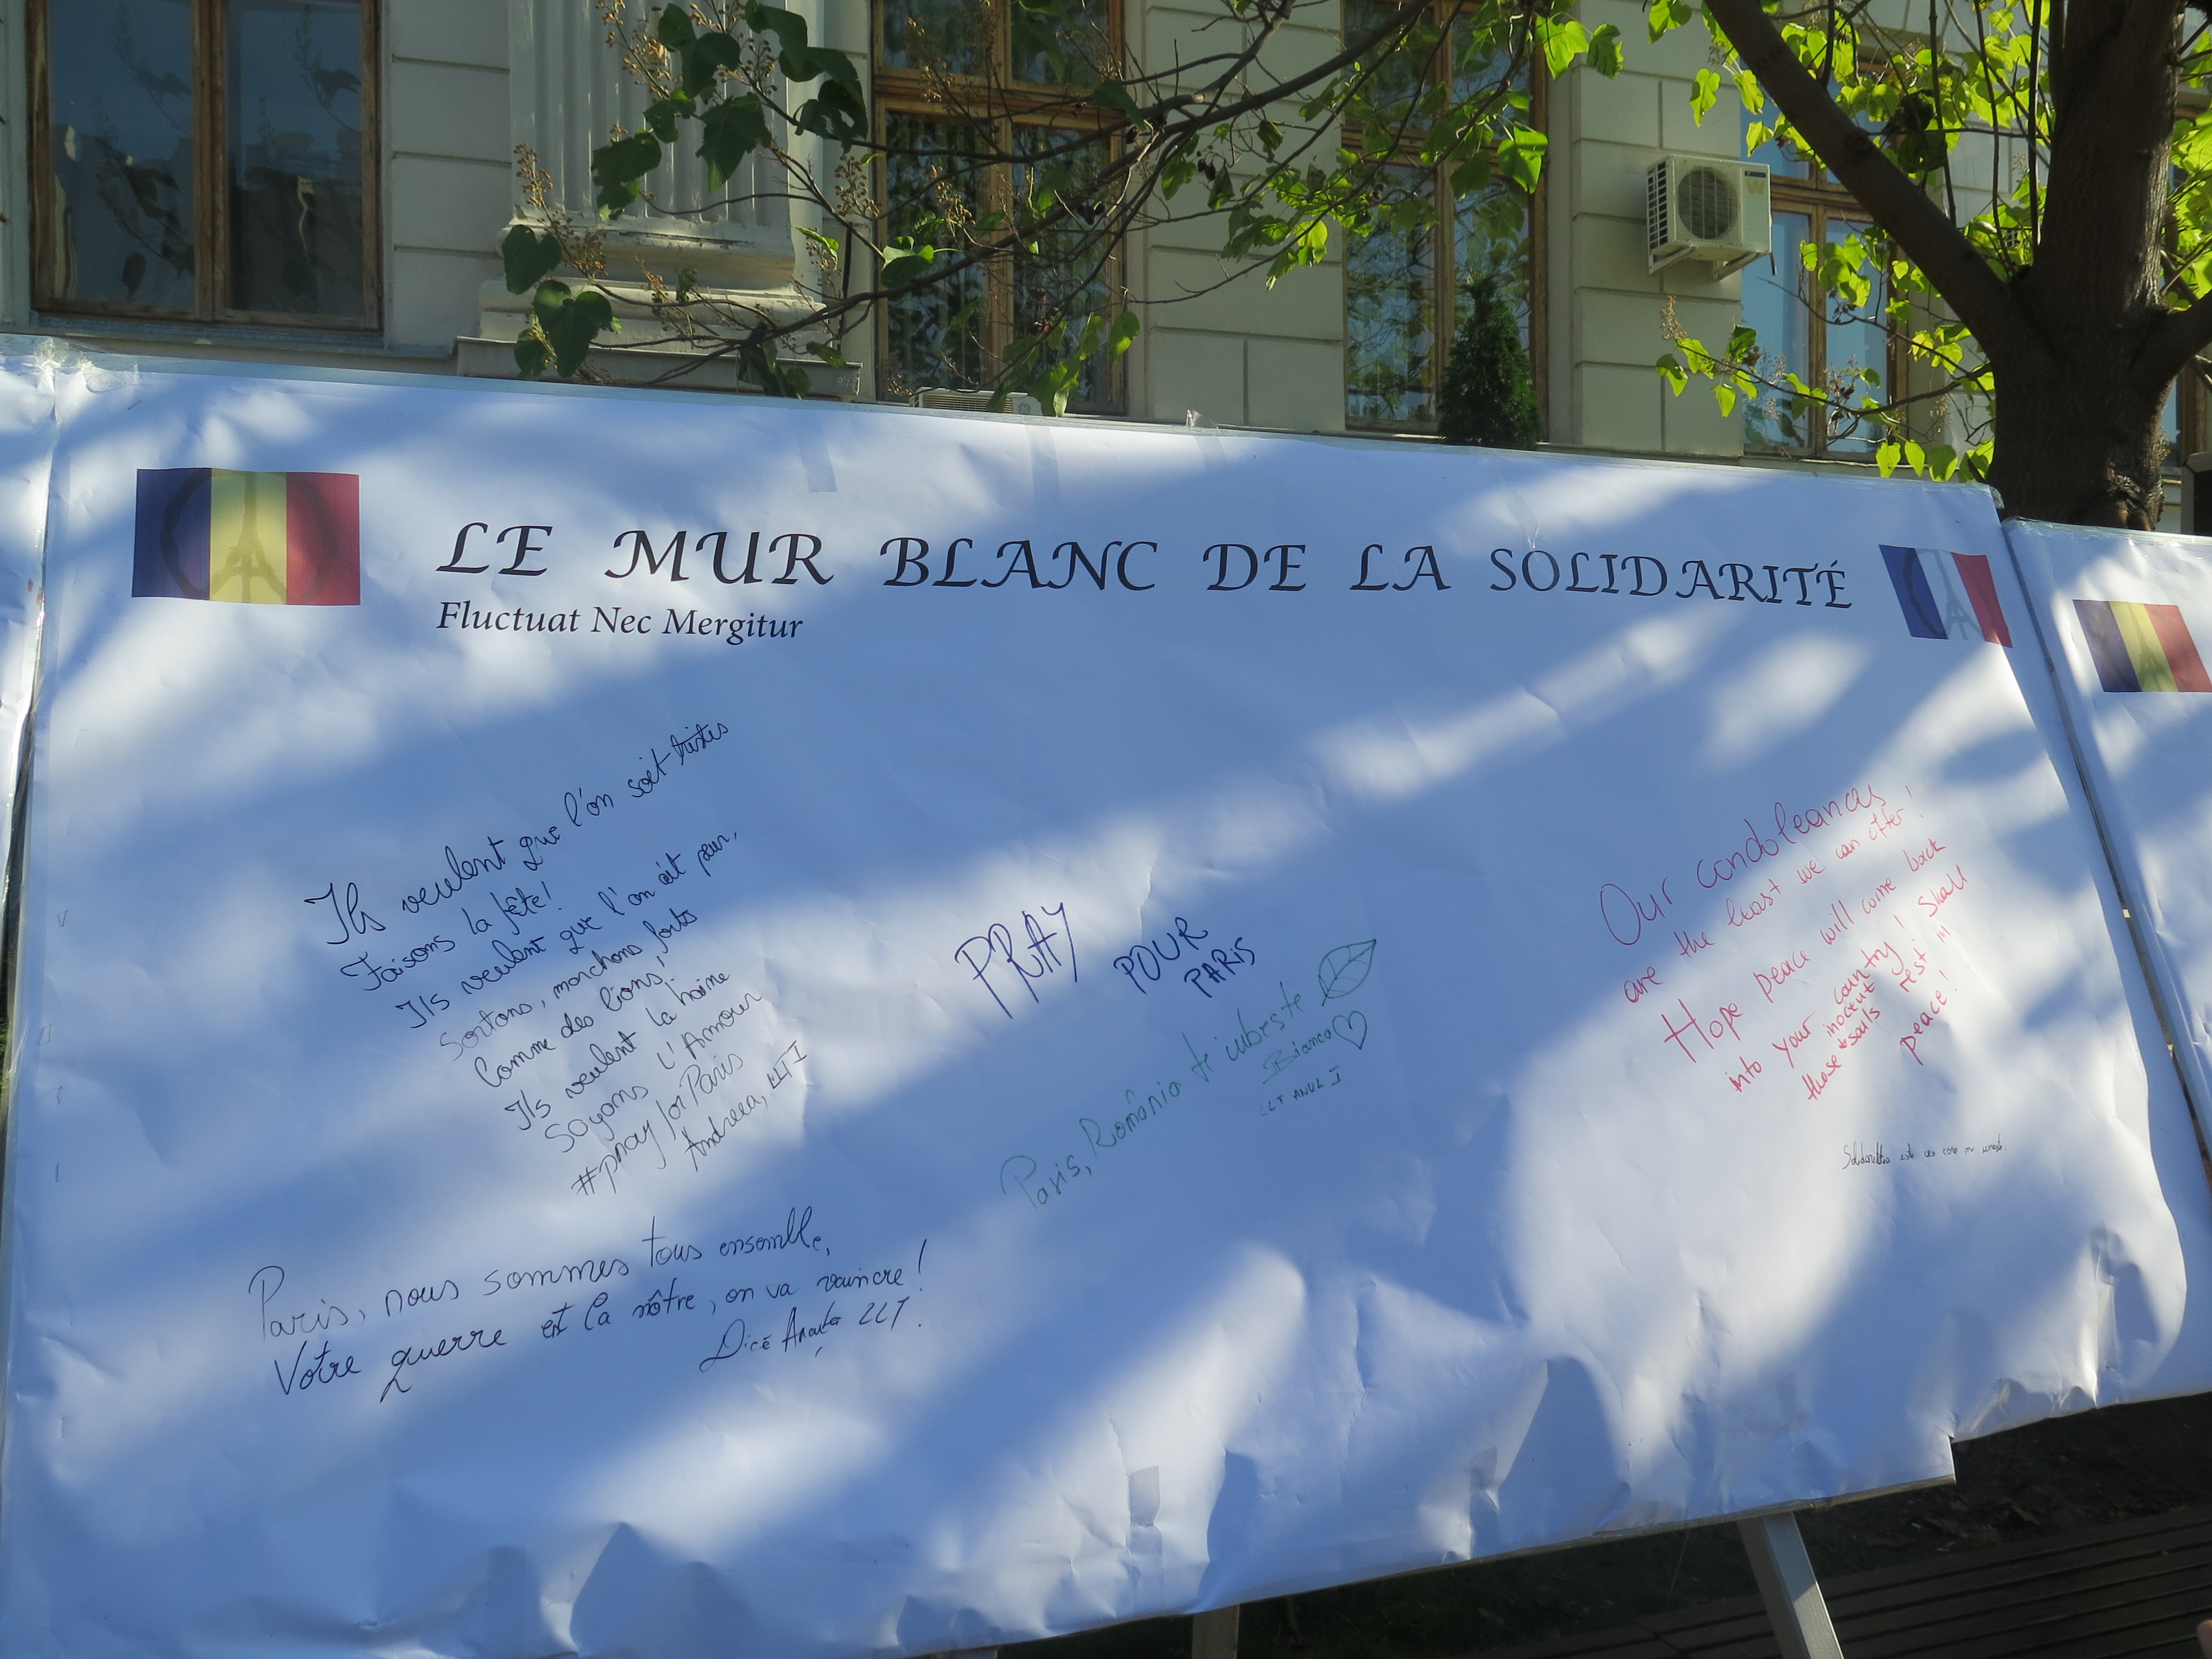 LE MUR BLANC DE LA SOLIDARITÉ
Fluctuat Nec Mergitur
Ils veulent que l'on soit tristes
Faisons la fête!
Ils veulent que l'on ait peur,
Sortons, marchons forts
Comme des lions,
Ils veulent la haine
Soyons L'Amour
#pray for Paris
Andreea, LLTI
Paris, nous sommes tous ensemble,
Votre guerre est la nôtre, on va vaincre!
Dicē LLT.
PRAY
POUR
PARIS
Paris, România te iubește
Bianca
LLT ANUL I
Our condoleances
are the least we can offer!
Hope peace will come back
into your country! Shall
those inocent souls rest in
peace!
Solidaritatea este cea care ne unește.